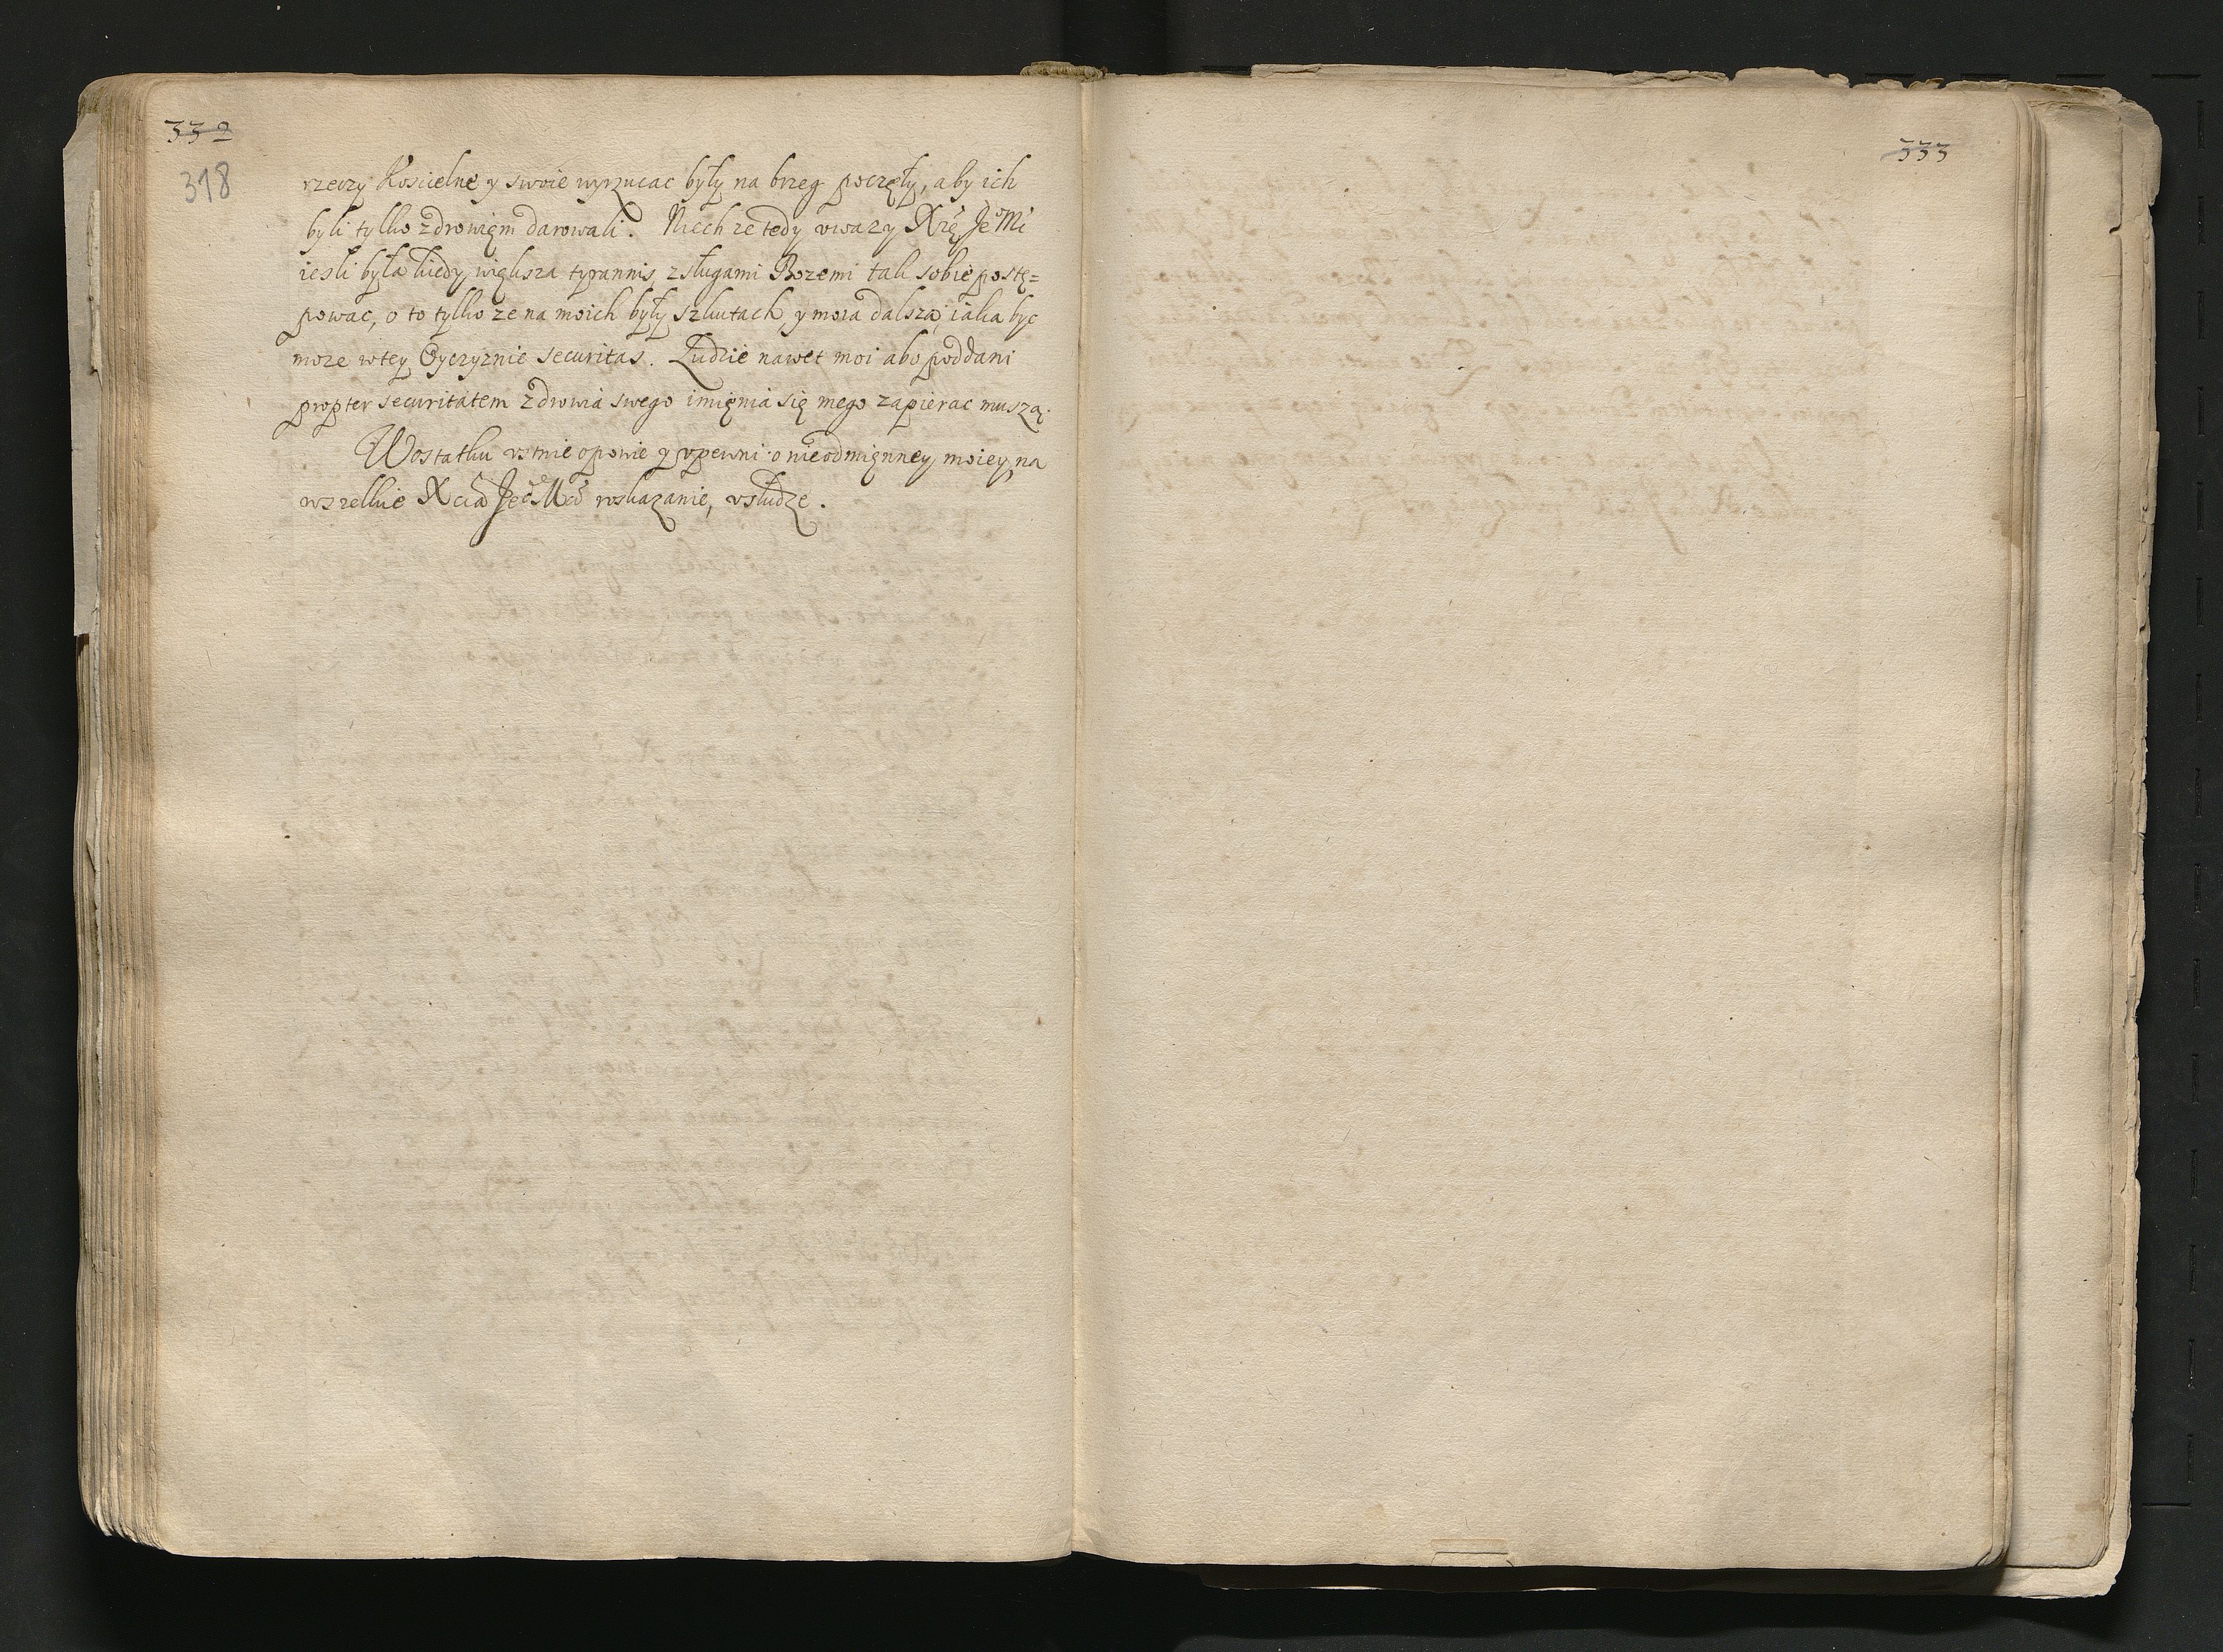 332
318
rzeczy Koscielne y swoie wyrzucac były na brzeg poczęły, aby ich
byli tylko zdrowięm darowali. Niech ze tedy uwazy Xżę Je Mć
iesli była kiedy, większa tyrannis, z sługami Bozemi tak sobie postę=
powac, o to tylko ze na moich były szkutach y moia dalsza, iaka byc
moze w tey Oyczyznie securitas. Ludzie nawet moi abo poddani
propter securitatem zdrowia swego imięnia się mego zapierac muszą.
Wostatku ustnie opowie y upewni o nieodmięnney moiey na
wszelkie Xcia Jeo Mci roskazanie, usłudze.
333